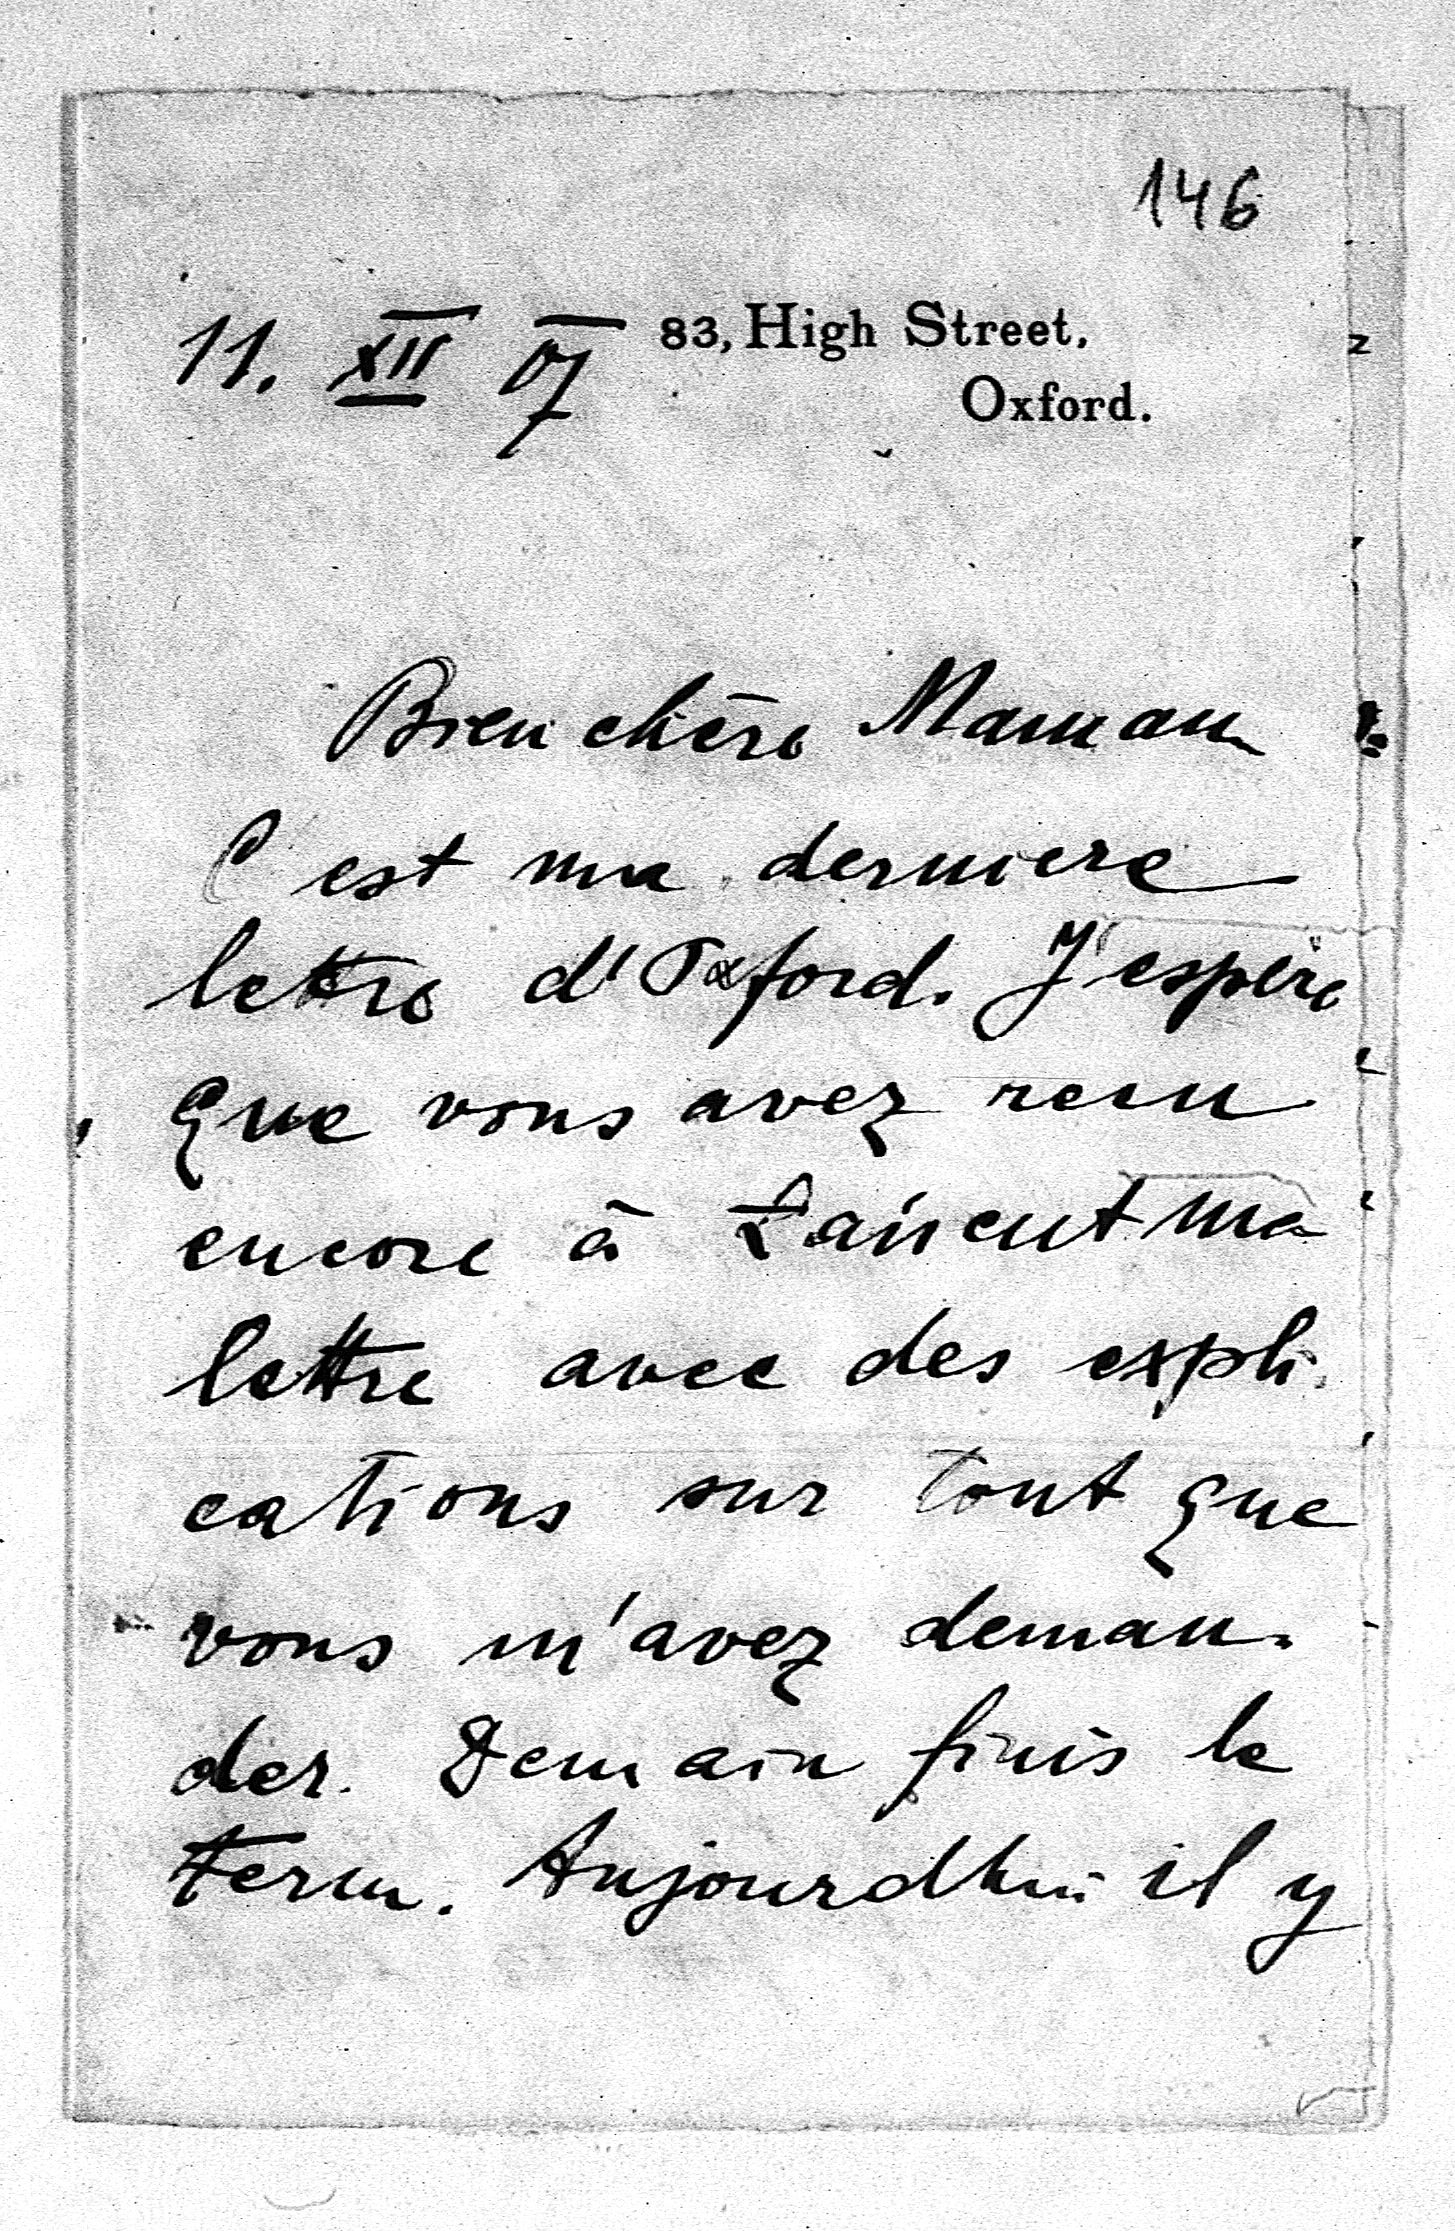 146
11. XII 07 83, High Street.
Oxford.
Bien chère Maman
C'est ma derniere
lettre d'Oxford. J'espère
que vous avez recu
encore à Łańcut ma
lettre avec des expli-
cations sur tout que
vous m'avez deman-
der. Demain finis le
term. Aujourdhui il y